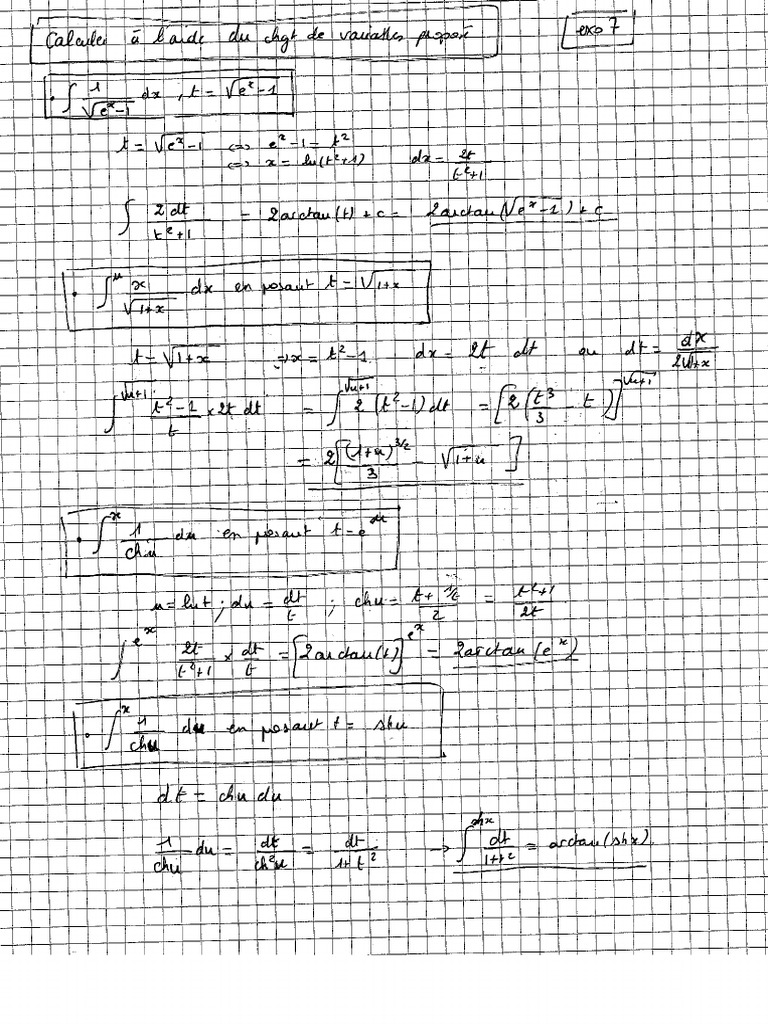 Calculer à l'aide du chgt de variables proposé
exo 7
• ∫ 1/√(e^x-1) dx , t = √(e^x-1)
t = √(e^x-1) <=> e^x-1 = t²
<=> x = ln(t²+1) dx = 2t/(t²+1)
∫ 2dt/(t²+1) = 2arctan(t) + c = 2arctan(√(e^x-1)) + c
• ∫^u x/√(1+x) dx en posant t = √(1+x)
t = √(1+x) => x = t²-1 dx = 2t dt ou dt = dx/(2√(1+x))
∫^√(u+1) (t²-1)/t × 2t dt = ∫^√(u+1) 2(t²-1)dt = [2(t³/3 - t)]^√(u+1)
= 2[(1+u)^3/2/3 - √(1+u)]
• ∫^x 1/chu du en posant t = e^u
u = ln t ; du = dt/t ; chu = (t + 1/t)/2 = (t²+1)/2t
∫^e^x 2t/(t²+1) × dt/t = [2arctan(t)]^e^x = 2arctan(e^x)
• ∫^x 1/chu du en posant t = shu
dt = chu du
1/chu du = dt/ch²u = dt/(1+t²) → ∫^shx dt/(1+t²) = arctan(shx)